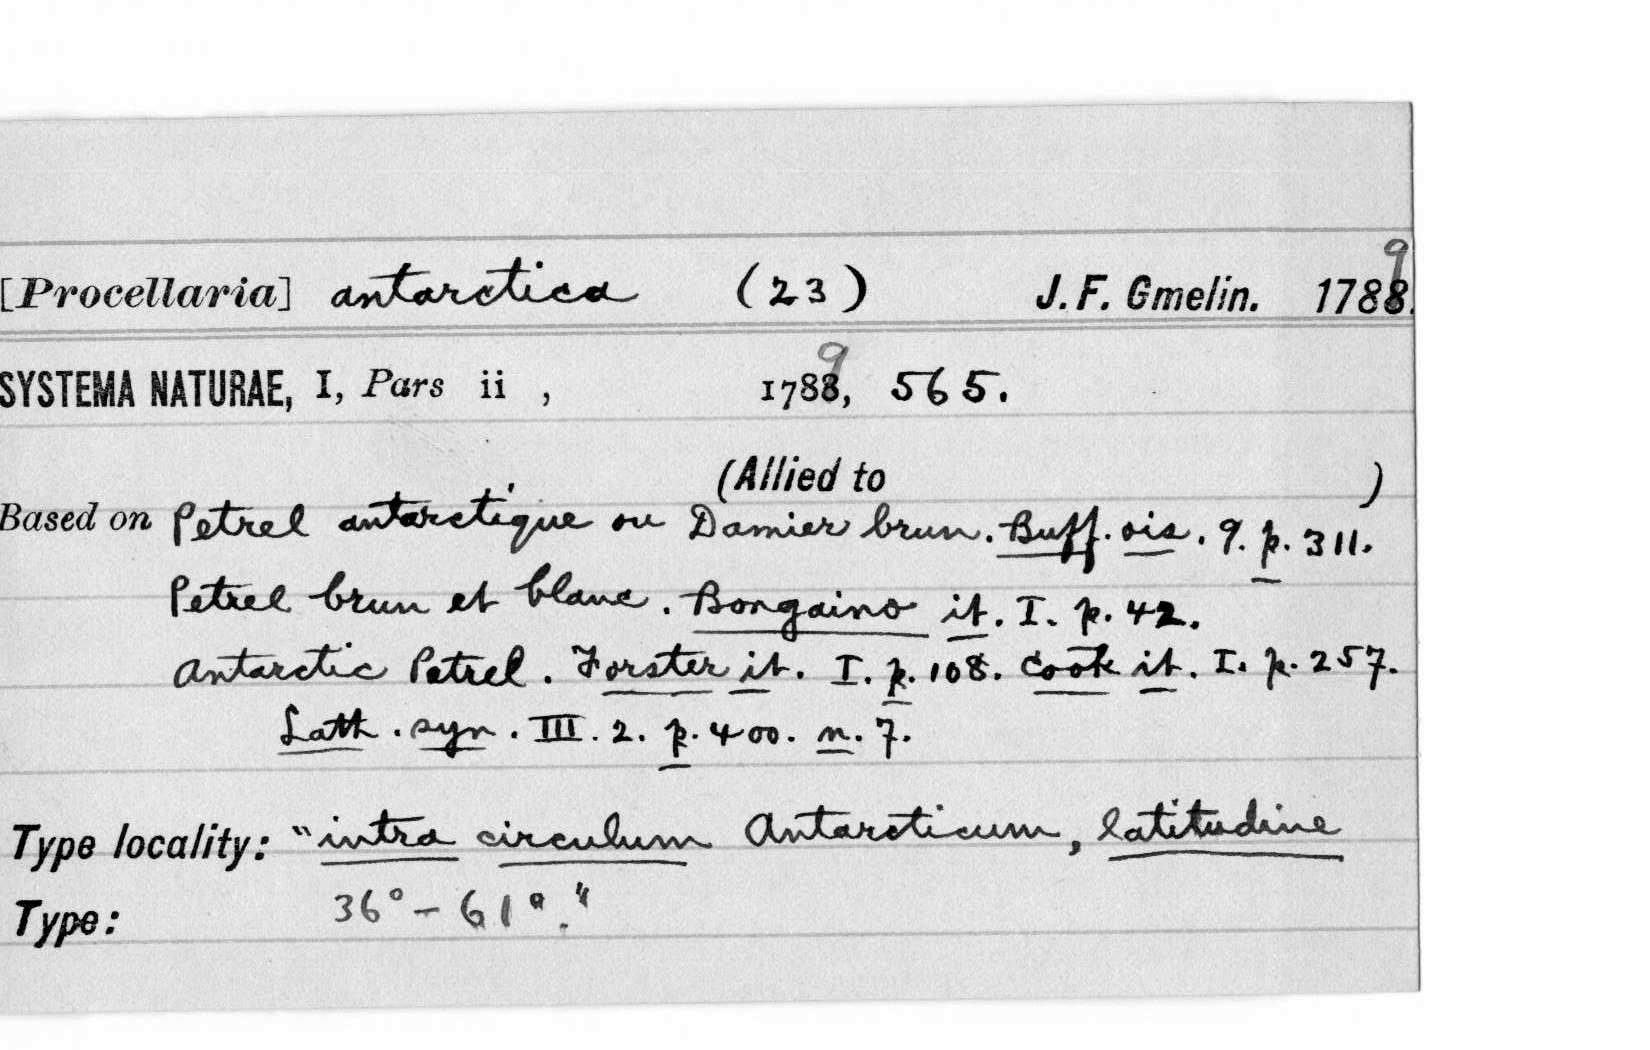 [Procellaria] antarctica (23) J. F. Gmelin. 1788. 9
SYSTEMA NATURAE, I, Pars ii , 1788, 9 565.
(Allied to )
Based on Petrel antarctique ou Damier brun. Buff. ois. 9. p. 311.
Petrel brun et blanc. Bongaino it. I. p. 42.
Antarctic Petrel. Forster it. I. p. 108. Cook it. I. p. 257.
Lath. syn. III. 2. p. 400. n. 7.
Type locality: "intra circulum Antarcticum, latitudine
Type: 36° - 61°."